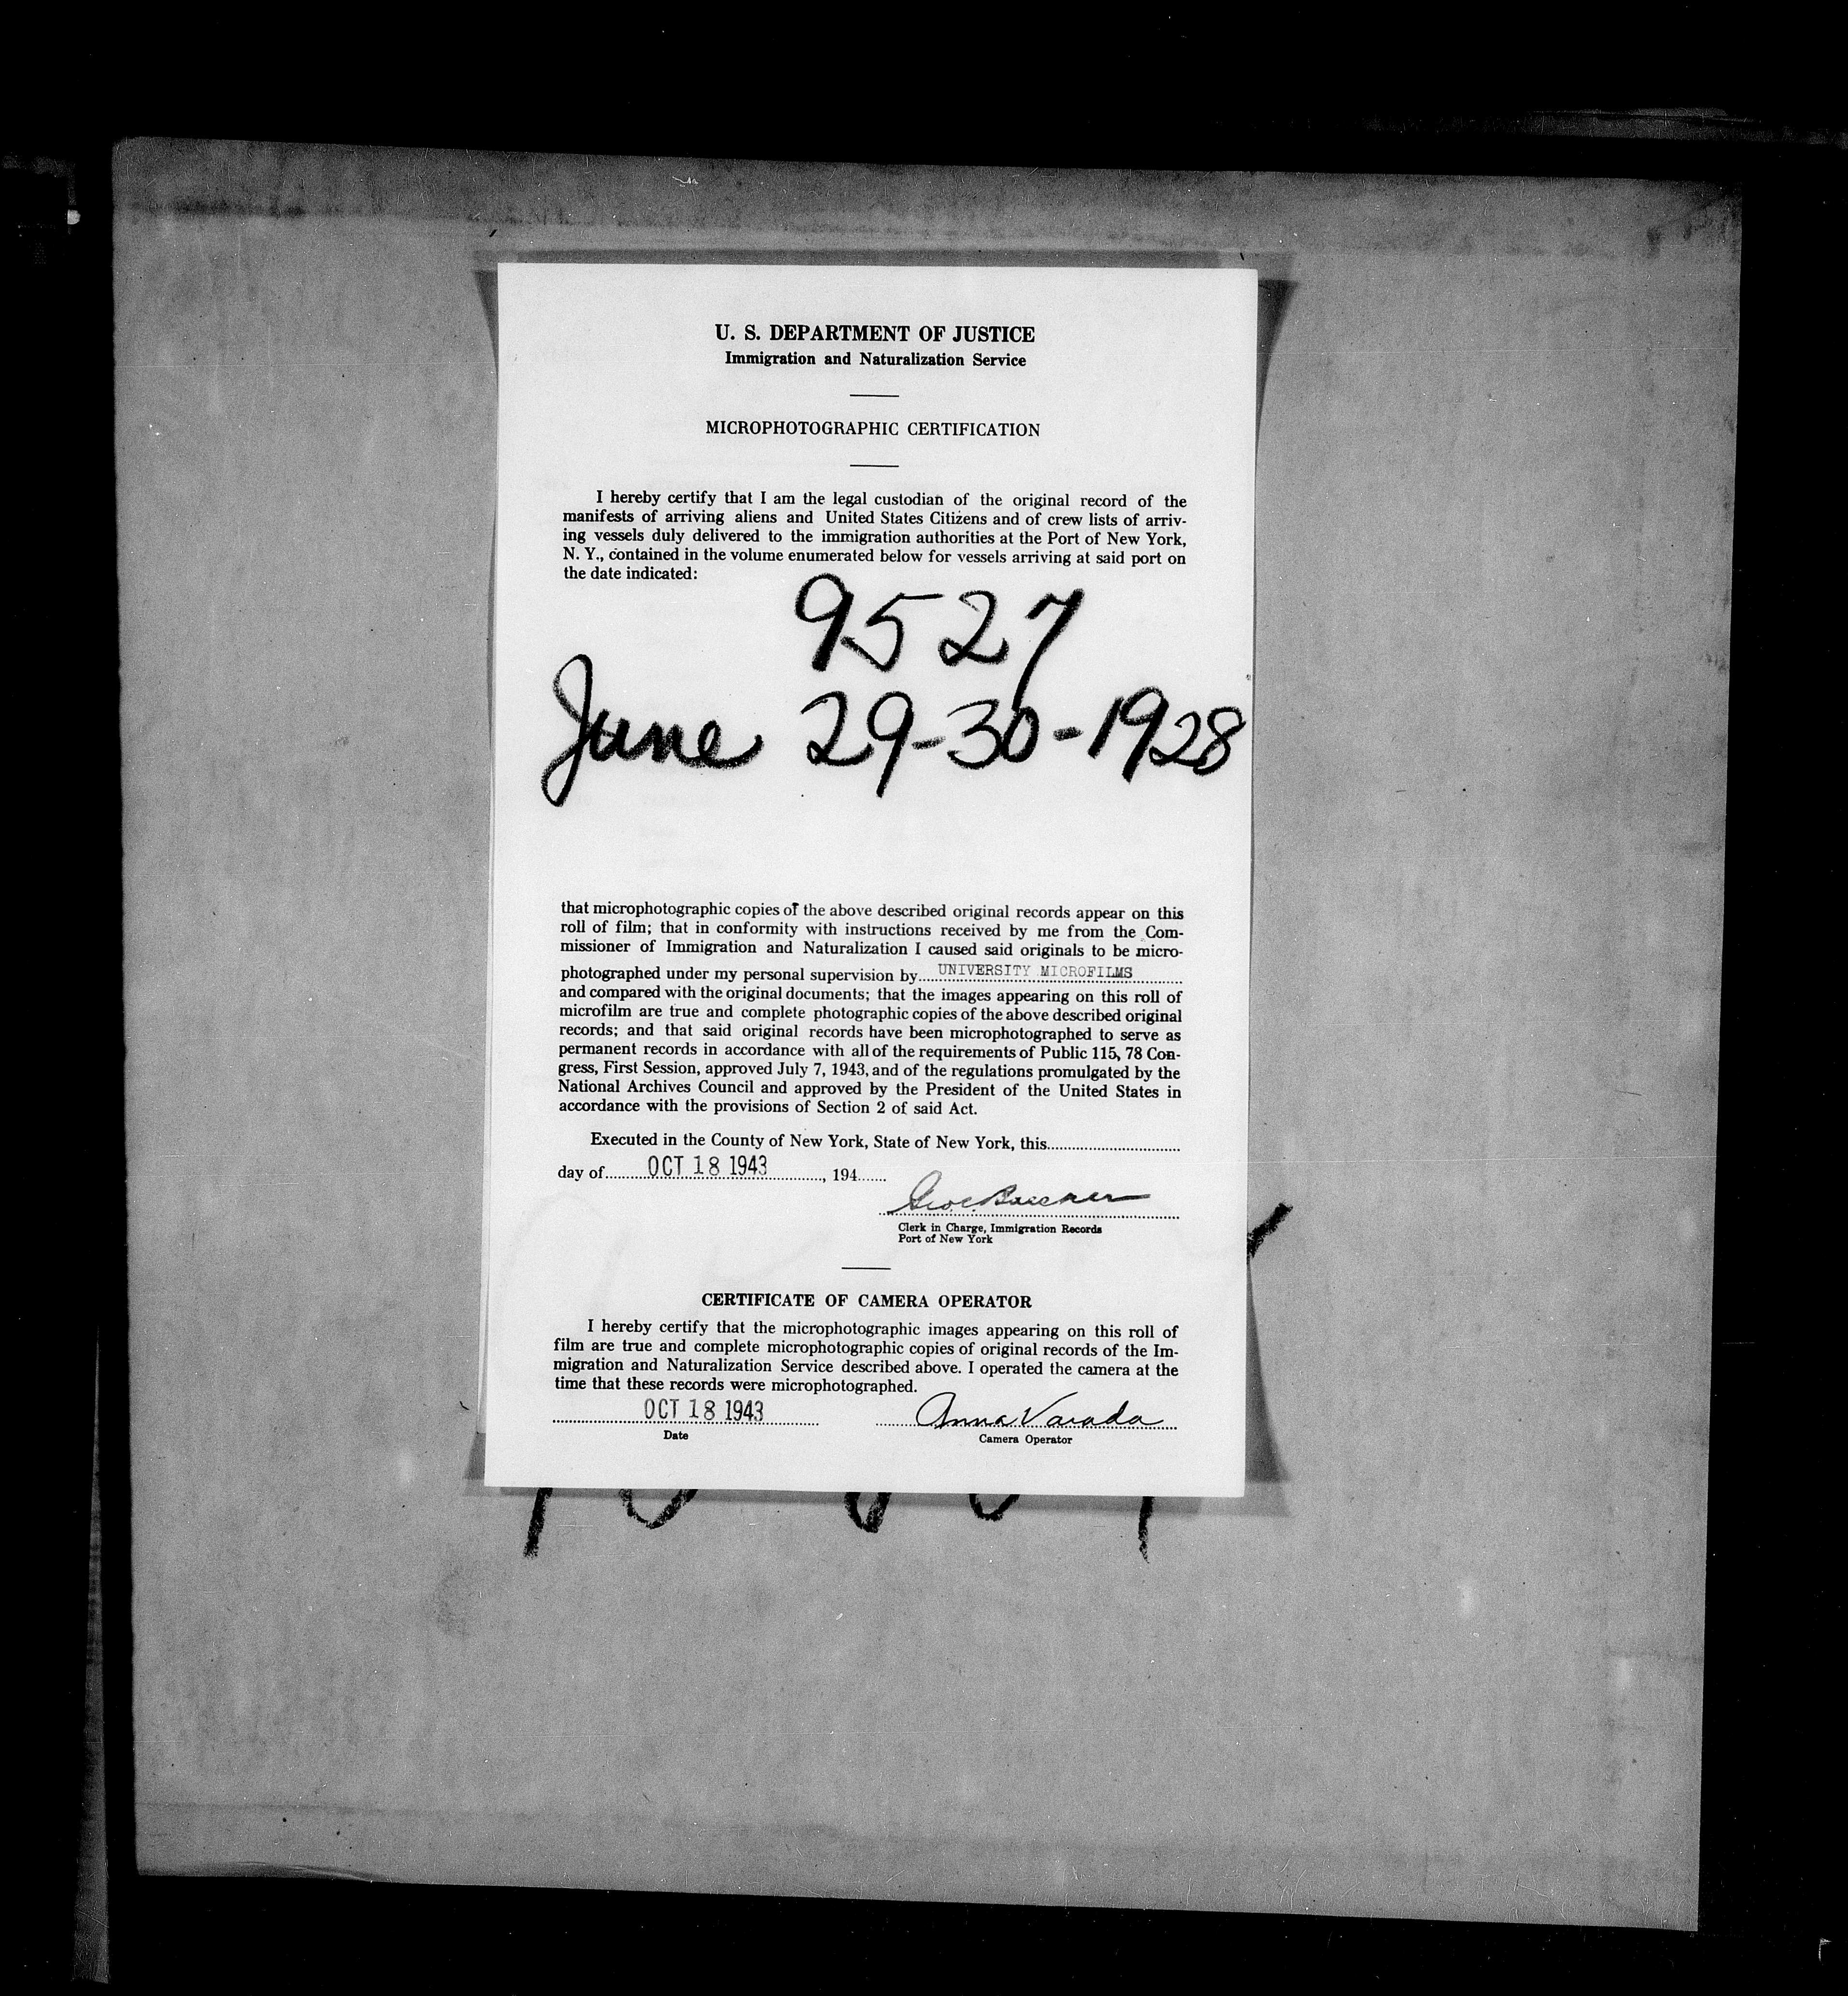 U. S. DEPARTMENT OF JUSTICE
Immigration and Naturalization Service
MICROPHOTOGRAPHIC CERTIFICATION
I hereby certify that I am the legal custodian of the original record of the
manifests of arriving aliens and United States Citizens and of crew lists of arriv-
ing vessels duly delivered to the immigration authorities at the Port of New York,
N. Y., contained in the volume enumerated below for vessels arriving at said port on
the date indicated:
9527
June 29-30-1928
that microphotographic copies of the above described original records appear on this
roll of film; that in conformity with instructions received by me from the Com-
missioner of Immigration and Naturalization I caused said originals to be micro-
photographed under my personal supervision by UNIVERSITY MICROFILMS
and compared with the original documents; that the images appearing on this roll of
microfilm are true and complete photographic copies of the above described original
records; and that said original records have been microphotographed to serve as
permanent records in accordance with all of the requirements of Public 115, 78 Con-
gress, First Session, approved July 7, 1943, and of the regulations promulgated by the
National Archives Council and approved by the President of the United States in
accordance with the provisions of Section 2 of said Act.
Executed in the County of New York, State of New York, this
day of OCT 18 1943, 194
Clerk in Charge, Immigration Records
Port of New York
CERTIFICATE OF CAMERA OPERATOR
I hereby certify that the microphotographic images appearing on this roll of
film are true and complete microphotographic copies of original records of the Im-
migration and Naturalization Service described above. I operated the camera at the
time that these records were microphotographed.
OCT 18 1943 Anna Varada
Date Camera Operator